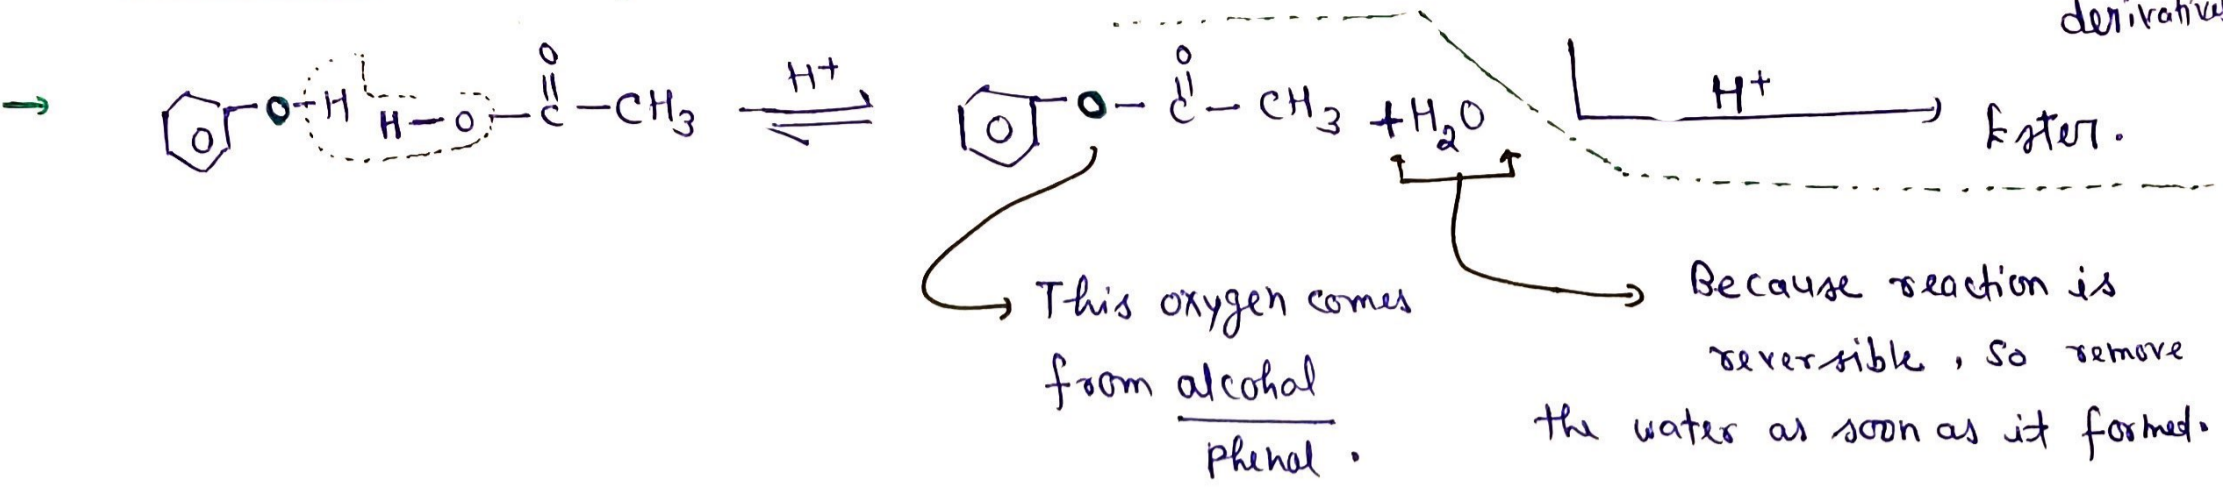 derivative
→ O-H H-O-C(=O)-CH3 ⇌ H+ O-C(=O)-CH3 + H2O
H+
Ester.
This oxygen comes
from alcohal
phenal .
Because reaction is
reversible , so remove
the water as soon as it formed.